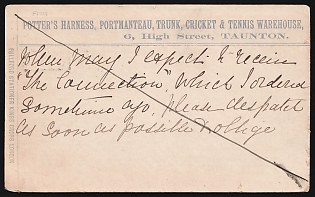 POTTER'S HARNESS, PORTMANTEAU, TRUNK, CRICKET & TENNIS WAREHOUSE,
6, High Street, TAUNTON.
When may I expect to receive
"The Connection", which I ordered
sometime ago, please despatch
as soon as possible & oblige